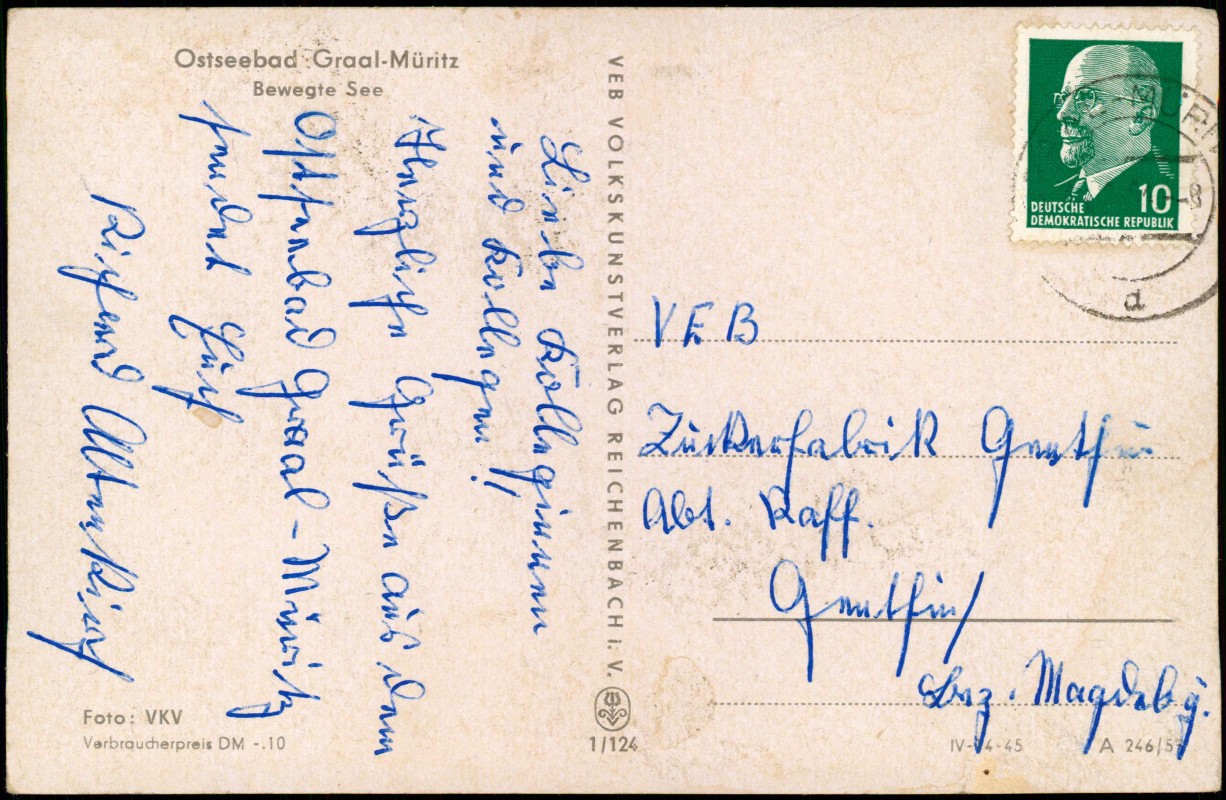 Ostseebad Graal-Müritz
Bewegte See
Liebe Kolleginnen
und Kollegen!
Herzliche Grüße aus dem
Ostseebad Graal-Müritz
sendet Euch
Richard
VEB VOLKSKUNSTVERLAG REICHENBACH i. V.
DEUTSCHE
DEMOKRATISCHE REPUBLIK
10
d
VEB
Zuckerfabrik Genthin
Abt. Raff.
Genthin/
Bez. Magdebg.
Foto: VKV
Verbraucherpreis DM -.10
1/124
A 246/